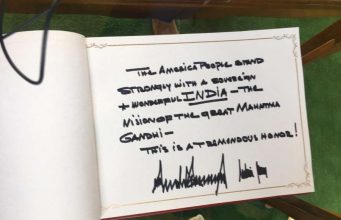 THE AMERICA PEOPLE STAND
STRONGLY WITH A SOVEREIGN
+ WONDERFUL INDIA - THE
VISION OF THE GREAT MAHATMA
GANDHI -
THIS IS A TREMENDOUS HONOR!